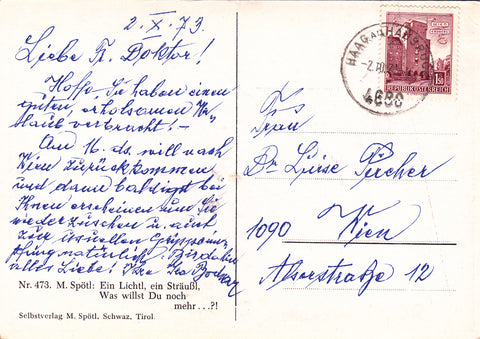 2. X. 73
Liebe Fr. Doktor!
Hoffe, Sie haben einen
guten, erholsamen Ur-
laub verbracht! –
Am 16. ds. will nach
Wien zurückkommen
und dann baldigst bei
Ihnen erscheinen und Sie
wiedersehen u. auch
zur
natürlich. Bis dahin
alles Liebe! Ihre
Nr. 473. M. Spötl: Ein Lichtl, ein Sträußl,
Was willst Du noch
mehr...?!
Selbstverlag M. Spötl, Schwaz, Tirol.
HAAG AM HAUSRUCK
4680
1.50
REPUBLIK ÖSTERREICH
Frau
Dr. Luise
1090 Wien
Alserstraße 12